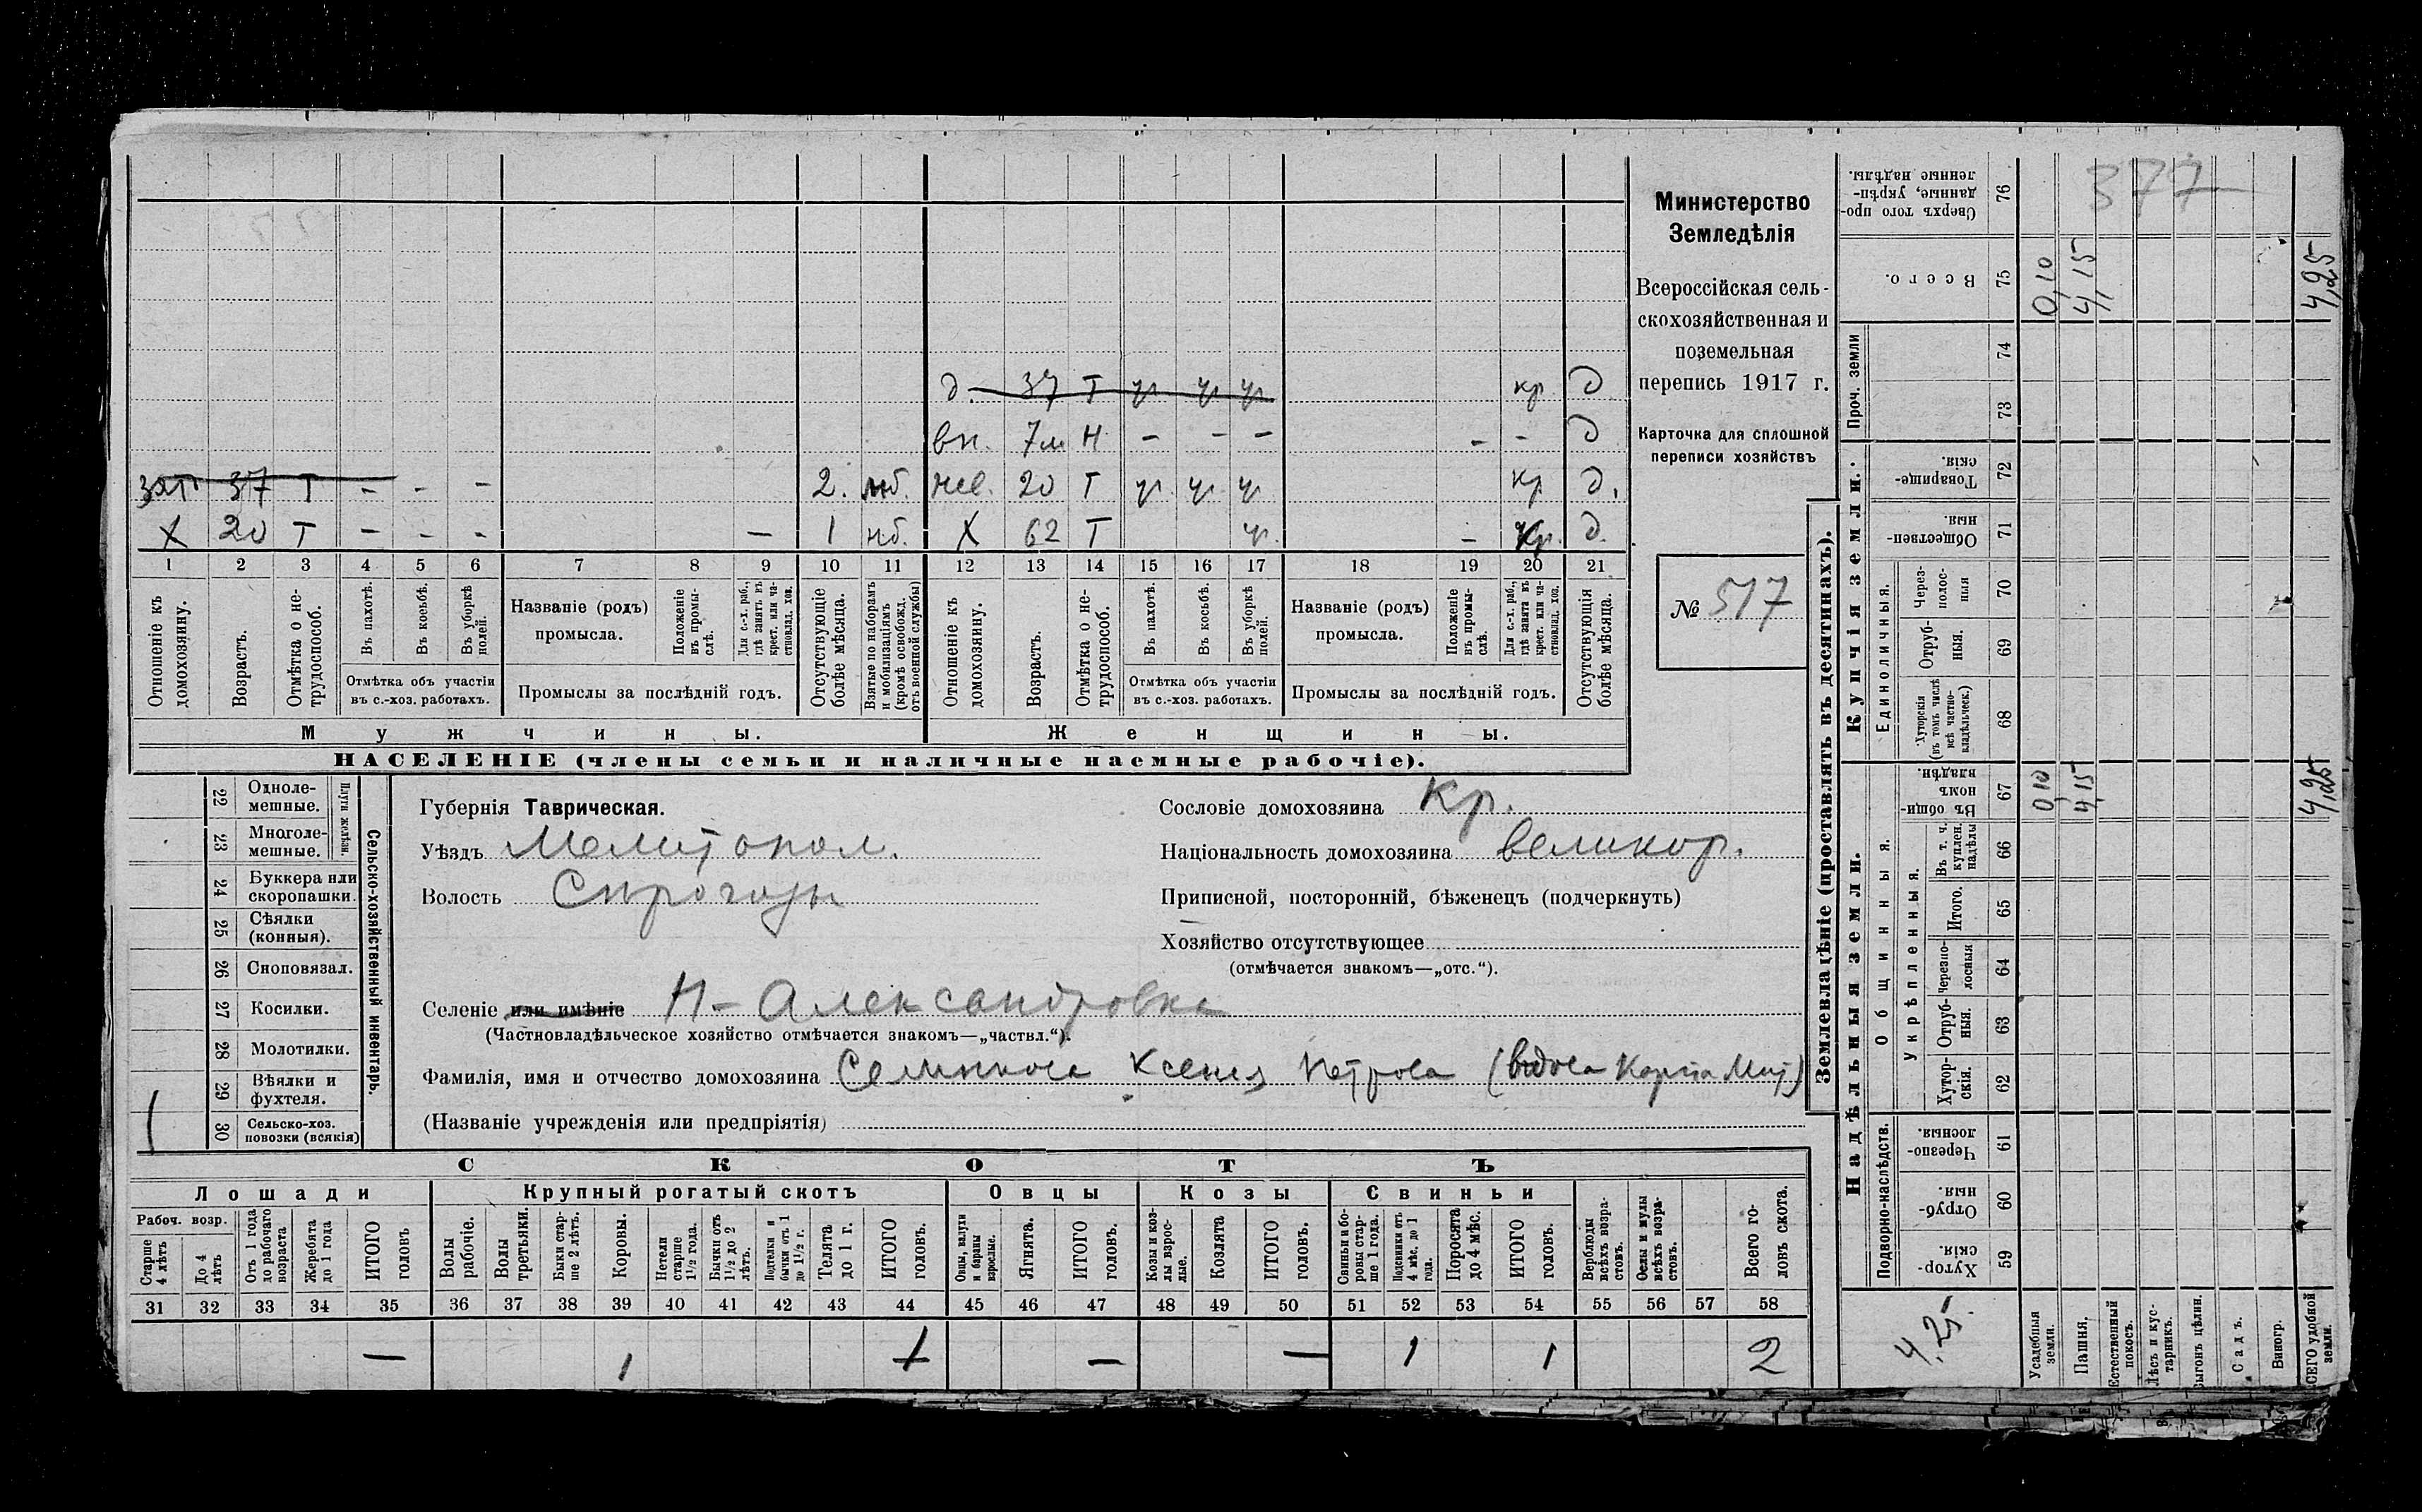 377
Министерство
Земледѣлія
Всероссійская сель-
скохозяйственная и
поземельная
перепись 1917 г.
Карточка для сплошной
переписи хозяйствъ
№ 517
д. 37 Т ур ур ур кр д
вн. 7м Н - - - - - д
зят 37 Т - - - 2. нев. 20 Т ур. ур. ур кр д.
Х 20 Т - - - - 1 нб. Х 62 Т ур. - кр. д.
1 2 3 4 5 6 7 8 9 10 11 12 13 14 15 16 17 18 19 20 21
Отношеніе къ домохозяину.
Возрастъ.
Отмѣтка о не-трудоспособ.
Въ пахотѣ.
Въ косьбѣ.
Въ уборкѣ полей.
Отмѣтка объ участіи
въ с.-хоз. работахъ.
Названіе (родъ)
промысла.
Положеніе въ промы-слѣ.
Для с.-х. раб., гдѣ занятъ въ крест. или ча-стновлад. хоз.
Промыслы за послѣдній годъ.
Отсутствующіе болѣе мѣсяца.
Взятые по наборамъ и мобилизаціямъ (кромѣ освобожд. отъ военной службы)
Отношеніе къ домохозяину.
Возрастъ.
Отмѣтка о не-трудоспособ.
Въ пахотѣ.
Въ косьбѣ.
Въ уборкѣ полей.
Отмѣтка объ участіи
въ с.-хоз. работахъ.
Названіе (родъ)
промысла.
Положеніе въ промы-слѣ.
Для с.-х. раб., гдѣ занята въ крест. или ча-стновлад. хоз.
Промыслы за послѣдній годъ.
Отсутствующія болѣе мѣсяца.
Мужчины. Женщины.
НАСЕЛЕНІЕ (члены семьи и наличные наемные рабочіе).
22 Одноле-мешные.
23 Многоле-мешные.
Плуги желѣзн.
24 Буккера или скоропашки.
25 Сѣялки (конныя).
26 Сноповязал.
27 Косилки.
28 Молотилки.
29 Вѣялки и фухтеля.
30 Сельско-хоз. повозки (всякія)
1
Сельско-хозяйственный инвентарь.
Губернія Таврическая.
Уѣздъ Мелитопол.
Волость Сирогозы
Селеніе или имѣніе Н-Александровка
(Частновладѣльческое хозяйство отмѣчается знакомъ—„частвл.“).
Фамилія, имя и отчество домохозяина Селинова Ксения Петрова (вдова Карпа Мит)
(Названіе учрежденія или предпріятія)
Сословіе домохозяина Кр.
Національность домохозяина великор.
Приписной, посторонній, бѣженецъ (подчеркнуть)
Хозяйство отсутствующее
(отмѣчается знакомъ—„отс.“).
СКОТЪ
Лошади Крупный рогатый скотъ Овцы Козы Свиньи
Рабоч. возр.
Старше 4 лѣтъ
До 4 лѣтъ
Отъ 1 года до рабочаго возраста
Жеребята до 1 года
ИТОГО головъ
Волы рабочіе.
Волы третьяки.
Быки стар-ше 2 лѣтъ.
Коровы.
Нетели старше 1½ года.
Бычки отъ 1½ до 2 лѣтъ.
Подтелки и бычки отъ 1 до 1½ г.
Телята до 1 г.
ИТОГО головъ.
Овцы, валухи и бараны взрослые.
Ягнята.
ИТОГО головъ.
Козы и коз-лы взрос-лые.
Козлята
ИТОГО головъ.
Свиньи и бо-ровы стар-ше 1 года.
Подсвинки отъ 4 мѣс. до 1 года.
Поросята до 4 мѣс.
ИТОГО головъ.
Верблюды всѣхъ возра-стовъ.
Ослы и мулы всѣхъ возра-стовъ.
Всего го-ловъ скота.
31 32 33 34 35 36 37 38 39 40 41 42 43 44 45 46 47 48 49 50 51 52 53 54 55 56 57 58
— 1 1 — — 1 1 2
Землевладѣніе (проставлять въ десятинахъ).
Надѣльныя земли. Купчія земли.
Подворно-наслѣдств. Общинныя. Укрѣпленныя. Единоличныя. Проч. земли
59 Хутор-скія.
60 Отруб-ныя.
61 Черезпо-лосныя.
62 Хутор-скія.
63 Отруб-ныя.
64 Черезпо-лосныя
65 Итого.
66 Въ т. ч. куплен. надѣлы
67 Въ общи-номъ владѣн. 0,10 4,15 4,25
68 Хуторскія (въ томъ числѣ всѣ частно-владѣльческ.)
69 Отруб-ныя.
70 Через-полос-ныя
71 Обществен-ныя.
72 Товарище-скія.
73
74
75 Всего. 0,10 4,15 4,25
76 Сверхъ того про-данные, укрѣп-ленные надѣлы.
4,25
Усадебныя земли.
Пашня.
Естественный покосъ.
Лѣсъ и кус-тарникъ.
Выгонъ цѣлин.
Садъ.
Виногр.
ВСЕГО удобной земли.